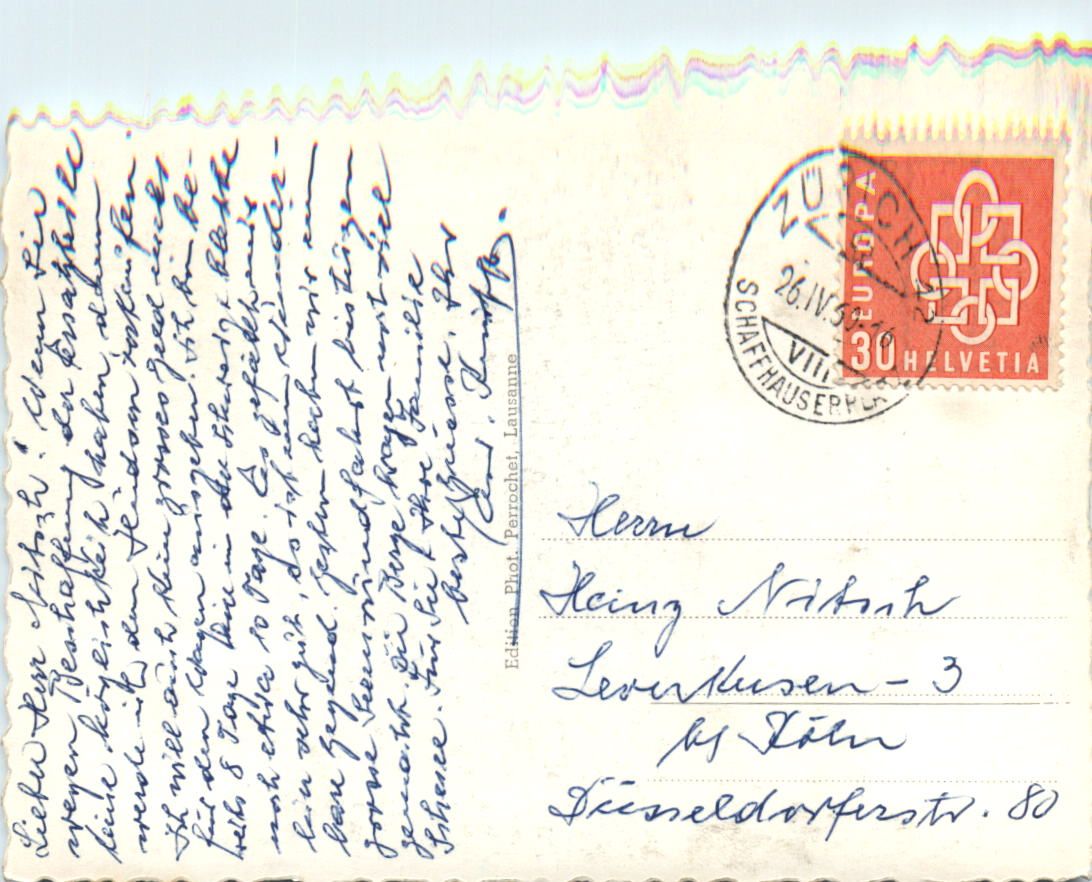 Lieber Herr Nitsch! Wenn Sie
wegen Beschaffung der Ersatzteile
keine Möglichkeit haben, dann
werde ich den Hudson verkaufen.
Ich will auch kein grosses Geld mehr
für den Wagen ausgeben. Ich bin be-
reits 8 Tage hier in der Schweiz, bleibe
noch etwa 10 Tage. Es gefällt mir
sehr gut, es ist eine wunder-
bare Gegend. Gestern haben wir eine
grosse Seerundfahrt bei
gemacht. Die Berge tragen noch viel
Schnee. Für Sie & Ihre Familie
beste Grüsse. Ihr
Edition Phot. Perrochet, Lausanne
ZÜRICH 22
26.IV.59-16
VIII
SCHAFFHAUSERPLATZ
EUROPA
30 HELVETIA
Herrn
Heinz Nitsch
Leverkusen-3
bg Köln
Düsseldorferstr. 80